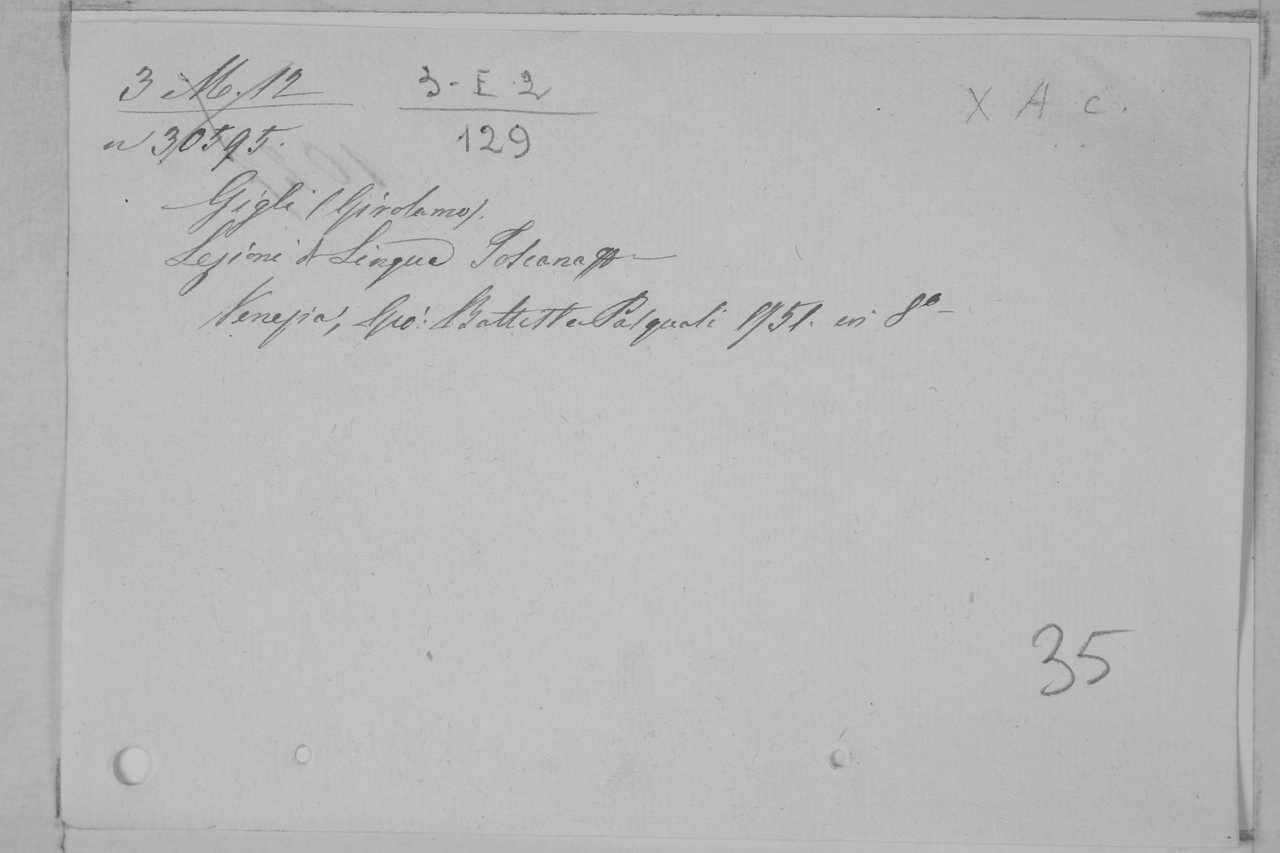 3 M. 12 3-E.2 X A c.
n 30595. 129
Gigli (Girolamo).
Lezioni di Lingua Toscana
Venezia, Gio: Battista Pasquali 1751. in 8º
35